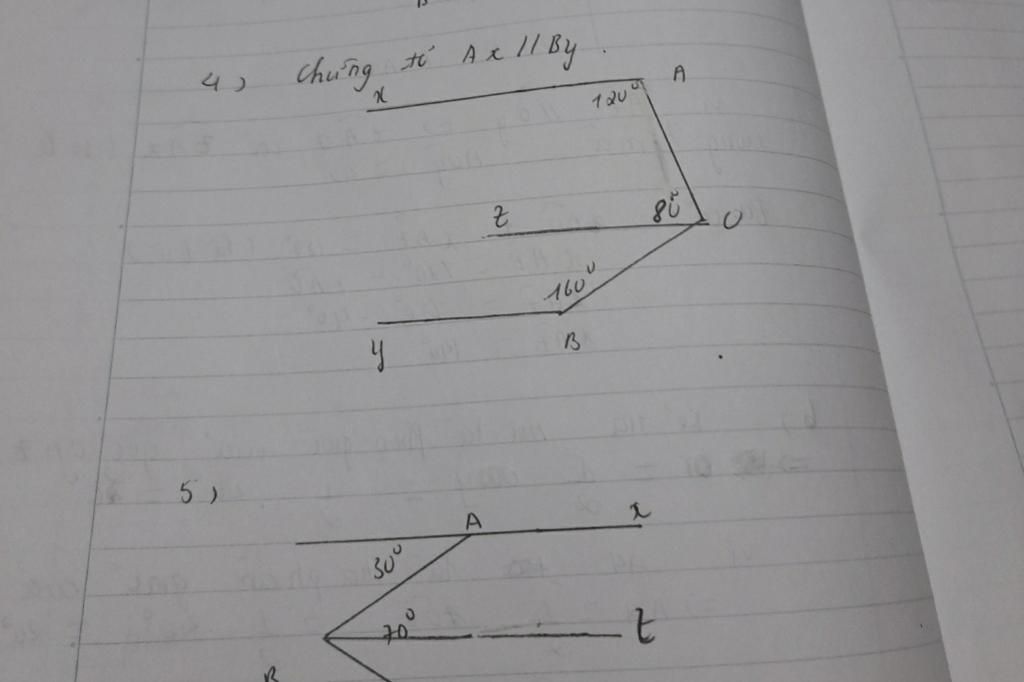 4, Chứng tỏ Ax // By.
x
A
120°
z
80°
O
160°
y
B
5,
A
x
30°
70°
t
B